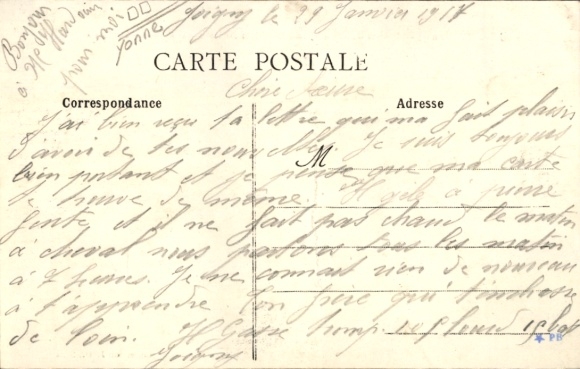 Joigny le 29 Janvier 1917
Yonne
Bonjour
à
pour moi
CARTE POSTALE
Chère Soeur
Correspondance
Adresse
J'ai bien reçu ta lettre qui ma fait plaisir
d'avoir de tes nouvelles. Je suis toujours
M
bien portant et je pense que ma carte
te trouve de même. Il gèle à pierre
fente et il ne fait pas chaud le matin
à cheval nous partons tous les matin
à 7 heures. Je ne connait rien de nouveau
à t'apprendre ton frère qui t'embrasse
de loin.
Joigny
PB